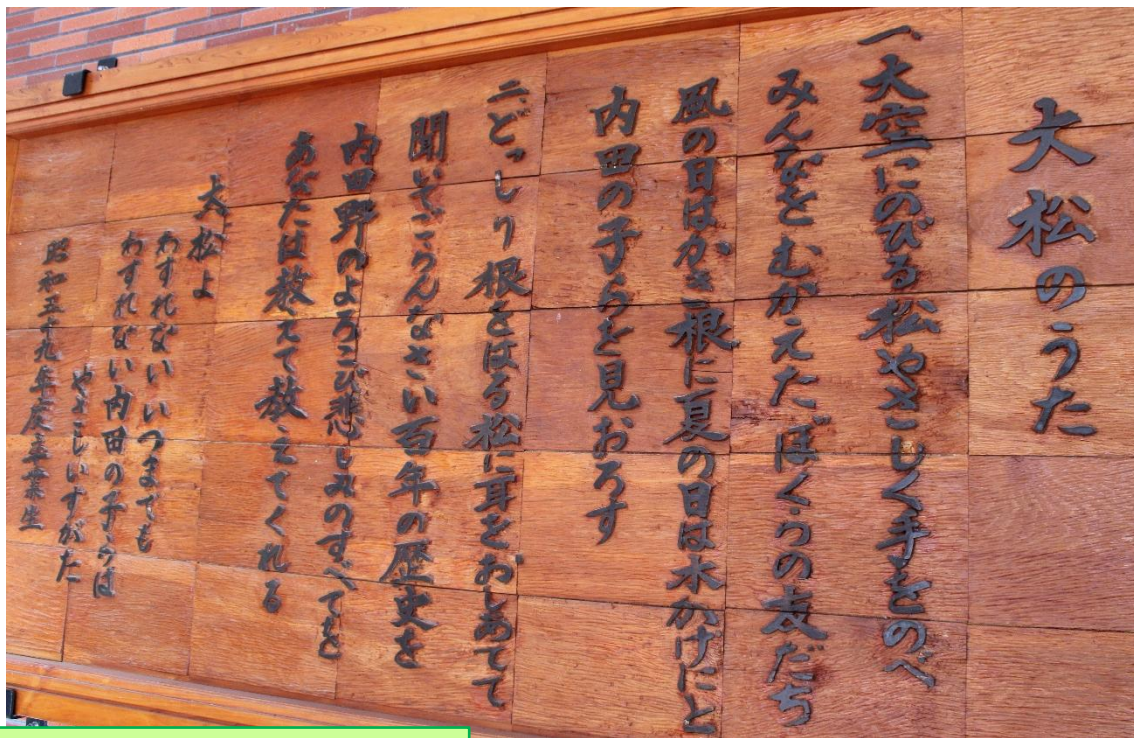 大松のうた
一、大空にのびる松やさしく手をのべ
みんなをむかえたぼくらの友だち
風の日はかき根に夏の日は木かげにと
内田の子らを見おろす
二、どっしり根をはる松に耳をおしあてて
聞いてごらんなさい百年の歴史を
内田野のよろこび悲しみのすべてを
あなたは教えて教えてくれる
大松よ
わすれない いつまでも
わすれない 内田の子らは
やさしいすがた
昭和五十九年度卒業生